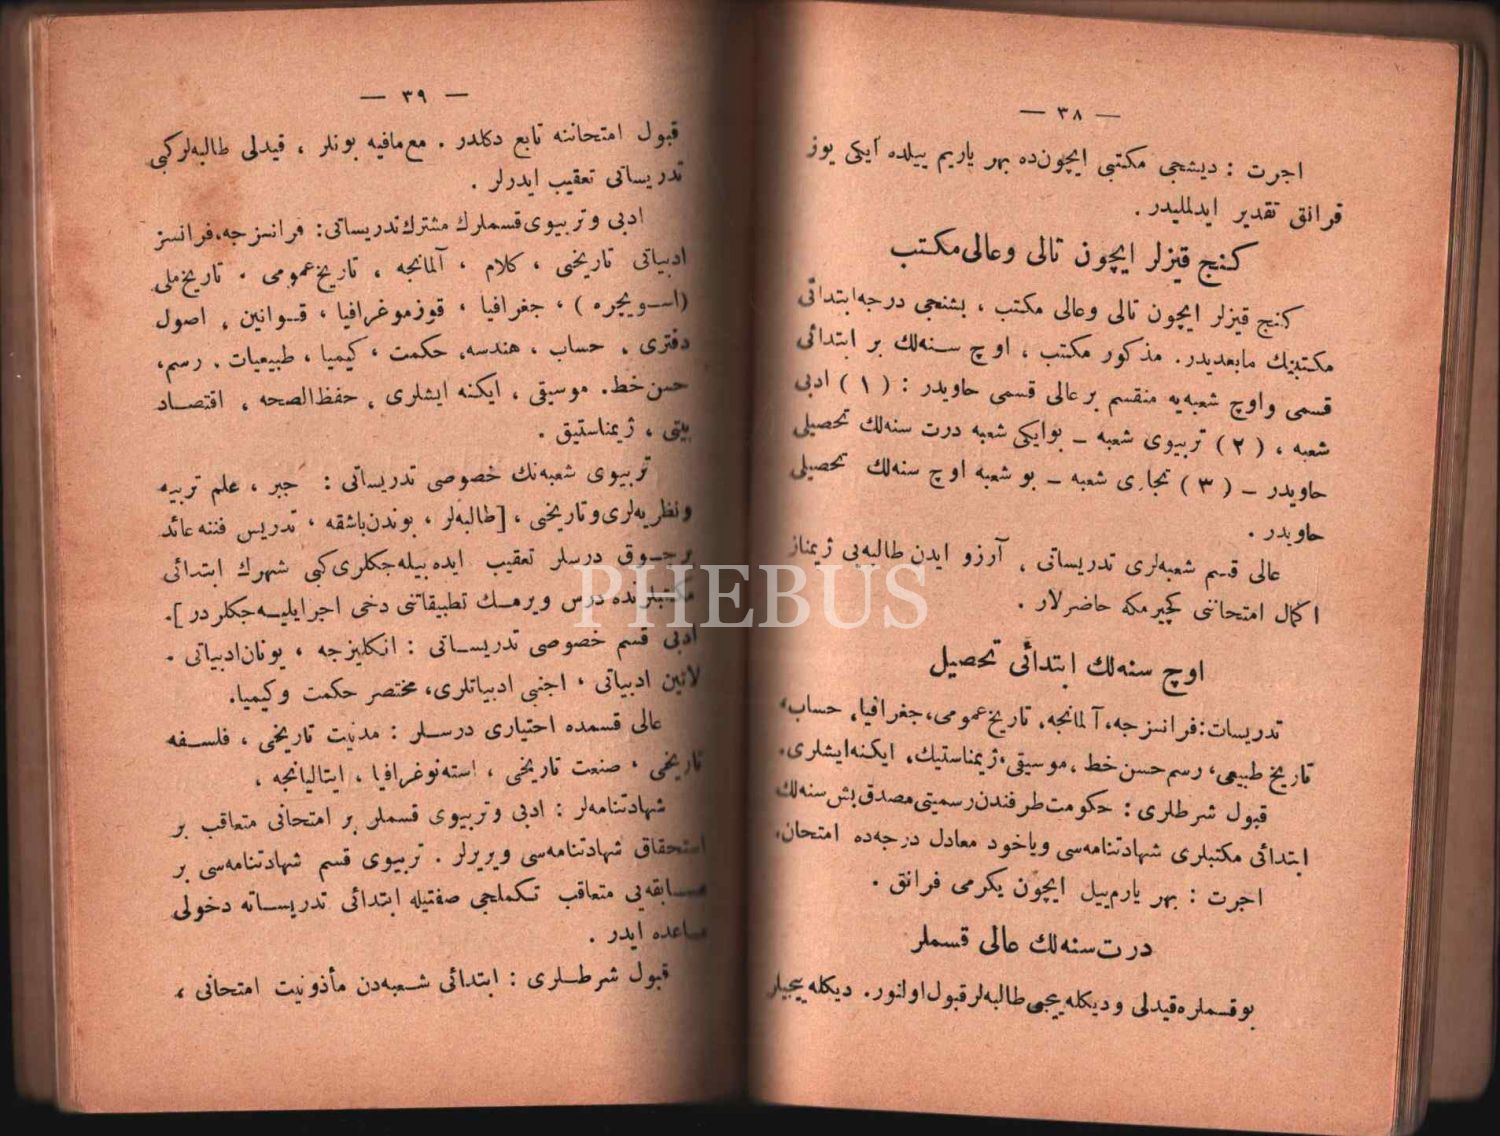 — ٣٨ —
اجرت : ديشجى مكتبى ايچون‌ده بهر ياريم ييلده ايكى يوز
فرانق تقدير ايدلمليدر .
كنج قيزلر ايچون تالى وعالى مكتب
كنج قيزلر ايچون تالى وعالى مكتب ، بشنجى درجه ابتدائى
مكتبنك مابعديدر. مذكور مكتب ، اوچ سنه‌لك بر ابتدائى
قسمى واوچ شعبه‌يه منقسم بر عالى قسمى حاويدر : ( ١ ) ادبى
شعبه ، ( ٢ ) تربيوى شعبه ــ بوايكى شعبه درت سنه‌لك تحصيلى
حاويدر ــ ( ٣ ) تجارى شعبه ــ بو شعبه اوچ سنه‌لك تحصيلى
حاويدر .
عالى قسم شعبه‌لرى تدريساتى ، آرزو ايدن طالبه‌يى ژيمناز
اكمال امتحاننى كچيرمكه حاضرلار .
اوچ سنه‌لك ابتدائى تحصيل
تدريسات : فرانسزجه، آلمانجه، تاريخ عمومى، جغرافيا، حساب،
تاريخ طبيعى، رسم حسن خط ، موسيقى، ژيمناستيك، ايكنه ايشلرى.
قبول شرطلرى : حكومت طرفندن رسميتى مصدق بش سنه‌لك
ابتدائى مكتبلرى شهادتنامه‌سى وياخود معادل درجه‌ده امتحان.
اجرت : بهر يارم ييل ايچون يكرمى فرانق .
درت سنه‌لك عالى قسملر
بو قسملره قيدلى وديكله‌ييجى طالبه‌لر قبول اولنور. ديكله‌ييجيلر
— ٣٩ —
قبول امتحاننه تابع دكلدر . مع‌مافيه بونلر ، قيدلى طالبه‌لركبى
تدريساتى تعقيب ايدرلر .
ادبى وتربيوى قسملرك مشترك تدريساتى : فرانسزجه، فرانسز
ادبياتى تاريخى ، كلام ، آلمانجه ، تاريخ عمومى . تاريخ ملى
(اسويچره ) ، جغرافيا ، قوزموغرافيا ، قوانين ، اصول
دفترى ، حساب ، هندسه، حكمت ، كيميا ، طبيعيات . رسم،
حسن خط . موسيقى ، ايكنه ايشلرى ، حفظ‌الصحه ، اقتصاد
بيتى ، ژيمناستيق .
تربيوى شعبه‌نك خصوصى تدريساتى : جبر ، علم تربيه
ونظريه‌لرى وتاريخى ، [طالبه‌لر ، بوندن باشقه ، تدريس فننه عائد
برچوق درسلر تعقيب ايده‌بيله‌جكلرى كبى شهرك ابتدائى
مكتبلرنده درس ويرمك تطبيقاتنى دخى اجرا ايليه‌جكلردر].
ادبى قسم خصوصى تدريساتى : انكليزجه ، يونان ادبياتى .
لاتين ادبياتى ، اجنبى ادبياتلرى، مختصر حكمت وكيميا.
عالى قسمده احتيارى درسلر : مدنيت تاريخى ، فلسفه
تاريخى ، صنعت تاريخى ، استه‌نوغرافيا ، ايتاليانجه .
شهادتنامه‌لر : ادبى وتربيوى قسملر بر امتحانى متعاقب بر
استحقاق شهادتنامه‌سى ويررلر . تربيوى قسم شهادتنامه‌سى بر
مسابقه‌يى متعاقب تكملجى صفتيله ابتدائى تدريساته دخولى
مساعده ايدر .
قبول شرطلرى : ابتدائى شعبه‌دن مأذونيت امتحانى ،
PHEBUS